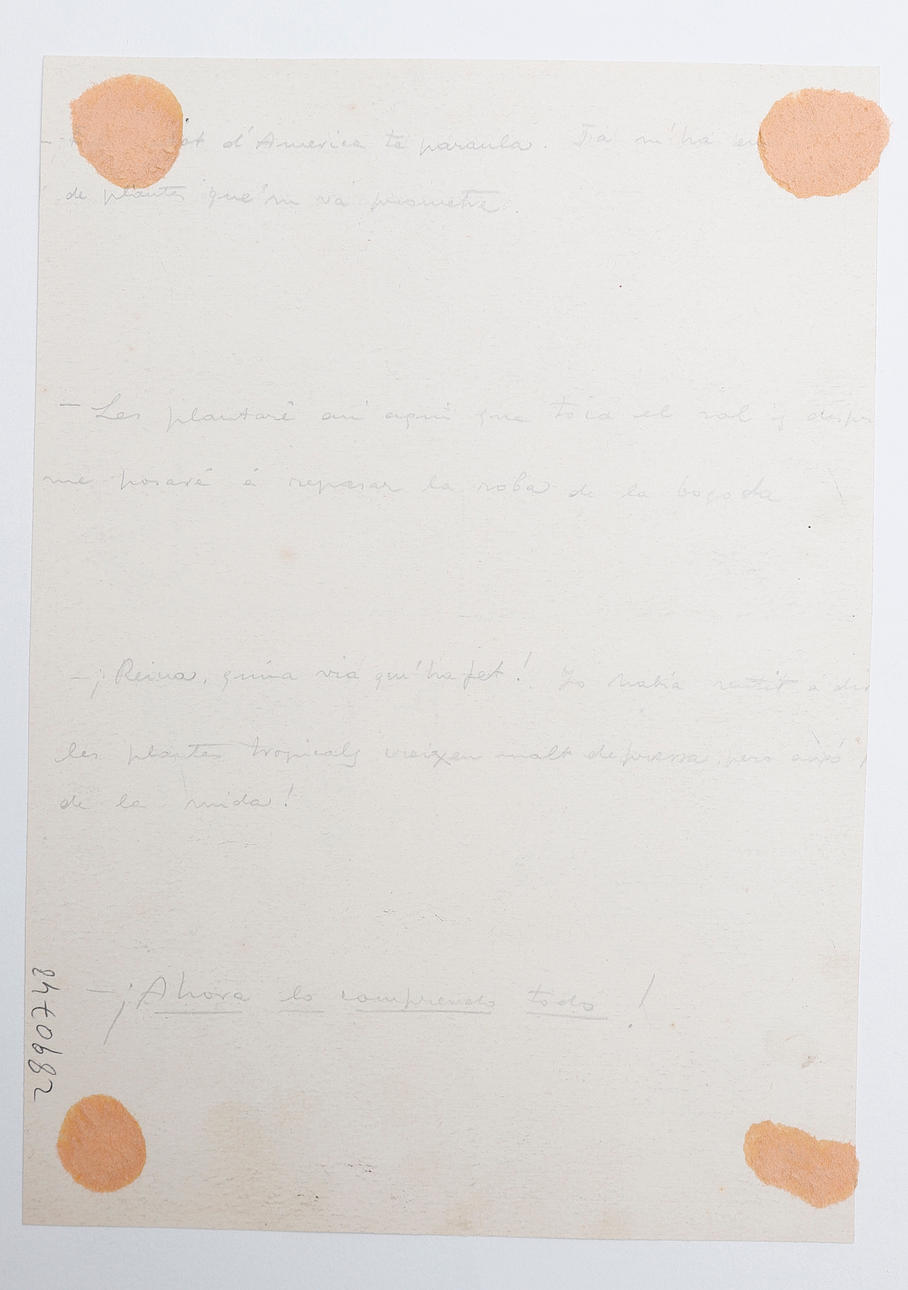 d'America te paraula. Ja m'ha
de plantes que'm va prometre.
— Les plantaré aquí que toca el sol y
me posaré á repasar la roba de la bogada
— ¡Reina, quina via qu'ha fet! Jo había sentit a
les plantes tropicals creixen molt depressa, pero aixó
de la mida!
— ¡Ahora lo comprendo todo!
2890748